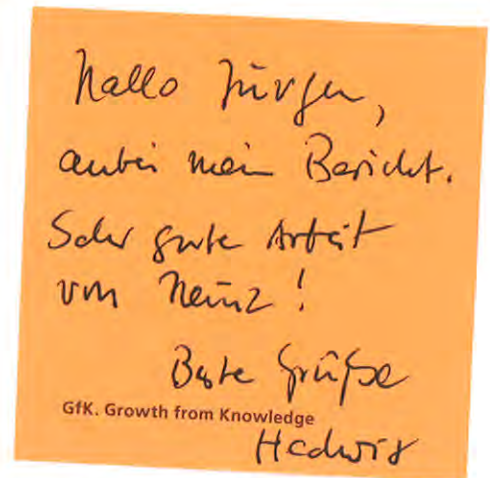 Hallo Jürgen,
anbei mein Bericht.
Sehr gute Arbeit
von Heinz!
Beste Grüße
GfK. Growth from Knowledge
Hedwig